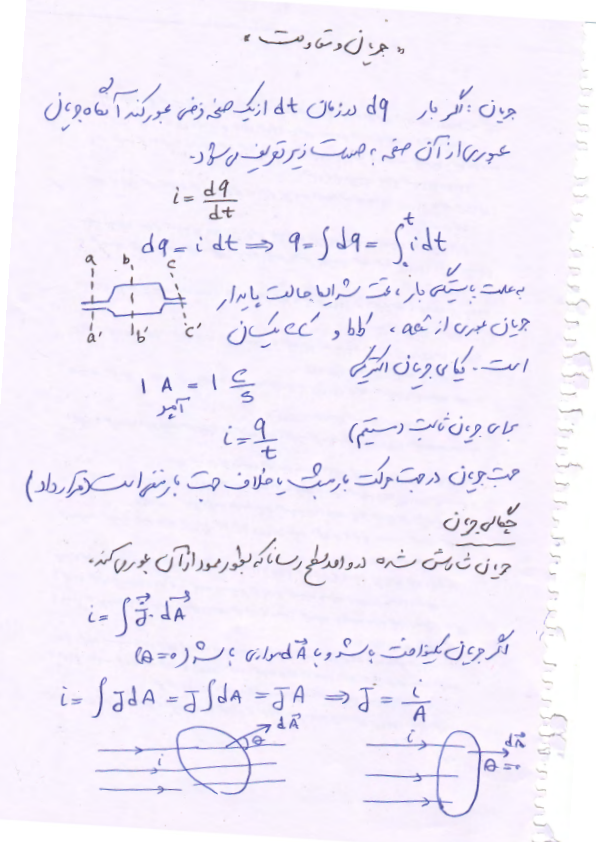 « جریان و مقاومت »
جریان : اگر بار dq در زمان dt از یک صفحه فرضی عبور کند آنگاه جریان
عبوری از آن صفحه به صورت زیر تعریف می شود.
i = dq/dt
dq = i dt ⇒ q = ∫dq = ∫ᵗ i dt
a b c
به علت پایستگی بار ، تحت شرایط حالت پایدار
a' b' c'
جریان عبوری از aa' ، bb' و cc' یکسان
است. یکای جریان الکتریکی
1 A = 1 C/s
آمپر
برای جریان ثابت (مستقیم)
i = q/t
جهت جریان در جهت حرکت بار مثبت یا خلاف جهت بار منفی است (قرارداد)
چگالی جریان
جریان شارش شده در واحد سطح رسانا که بطور عمود از آن عبور می کند.
i = ∫ J⃗ . dA⃗
اگر جریان یکنواخت باشد و با dA⃗ موازی باشد (θ=0)
i = ∫ J dA = J ∫ dA = J A ⇒ J = i/A
dA⃗ θ i
i dA⃗ θ=0